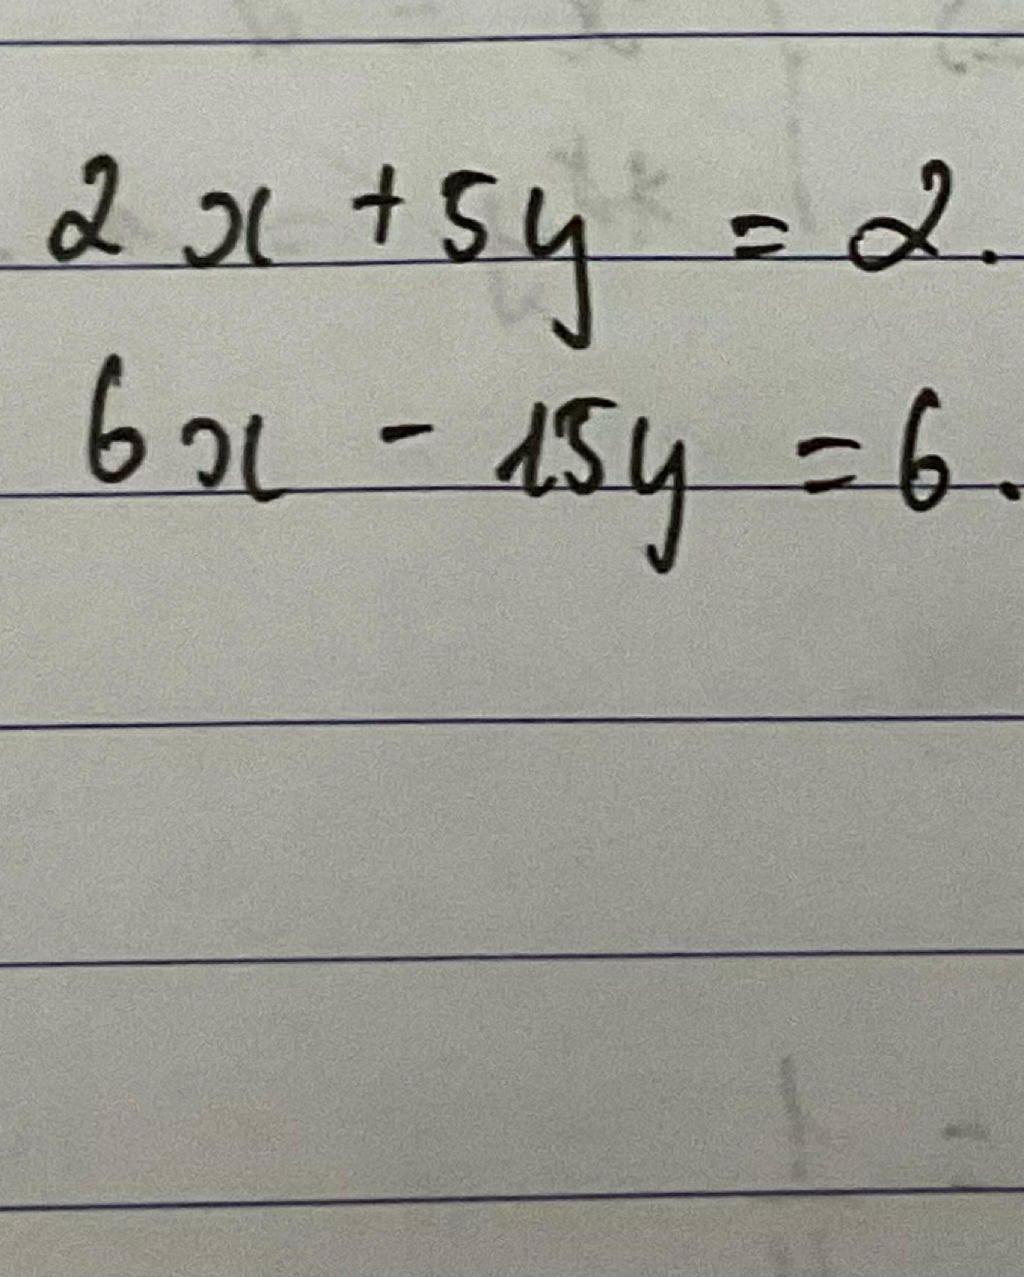 2x + 5y = 2.
6x - 15y = 6.